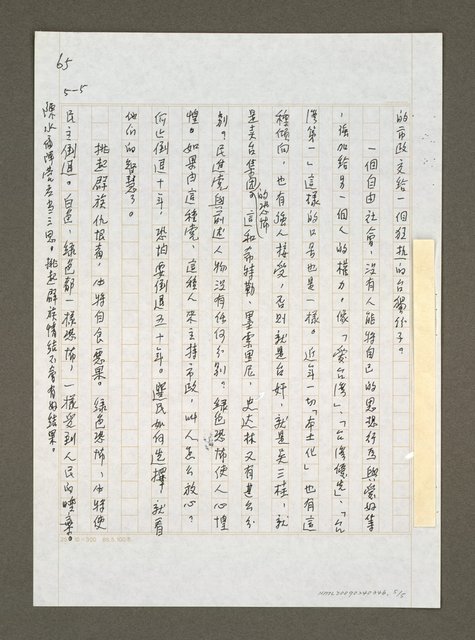 65
5-5
的市政交給一個狂執的台獨份子。
一個自由社會,沒有人能將自己的思想行為與愛好等
,強加給另一個人的權力。像「愛台灣」、「台灣優先」、「台
灣第一」這樣的口號也是一樣。近年一切「本土化」也有這
種傾向,也有強人接受,否則就是台奸,就是吳三桂,就
是賣台集團的恐怖。這和希特勒、墨索里尼、史達林又有甚麼分
別。民進黨與前述人物沒有任何分別?綠色恐怖使人心惶
惶。如果由這種黨,這種人來主持市政,叫人怎么放心?
何止倒退十年,恐怕要倒退五十年。選民如何選擇,就看
他們的智慧了。
挑起群族仇恨者,也將自食惡果。綠色恐怖,也將使
民主倒退。白色、綠色都一樣恐怖,一樣受到人民的唾棄。
陳水扁陣營應當三思。挑起群族情結不會有好結果。
NMTL20060240046, 5/5